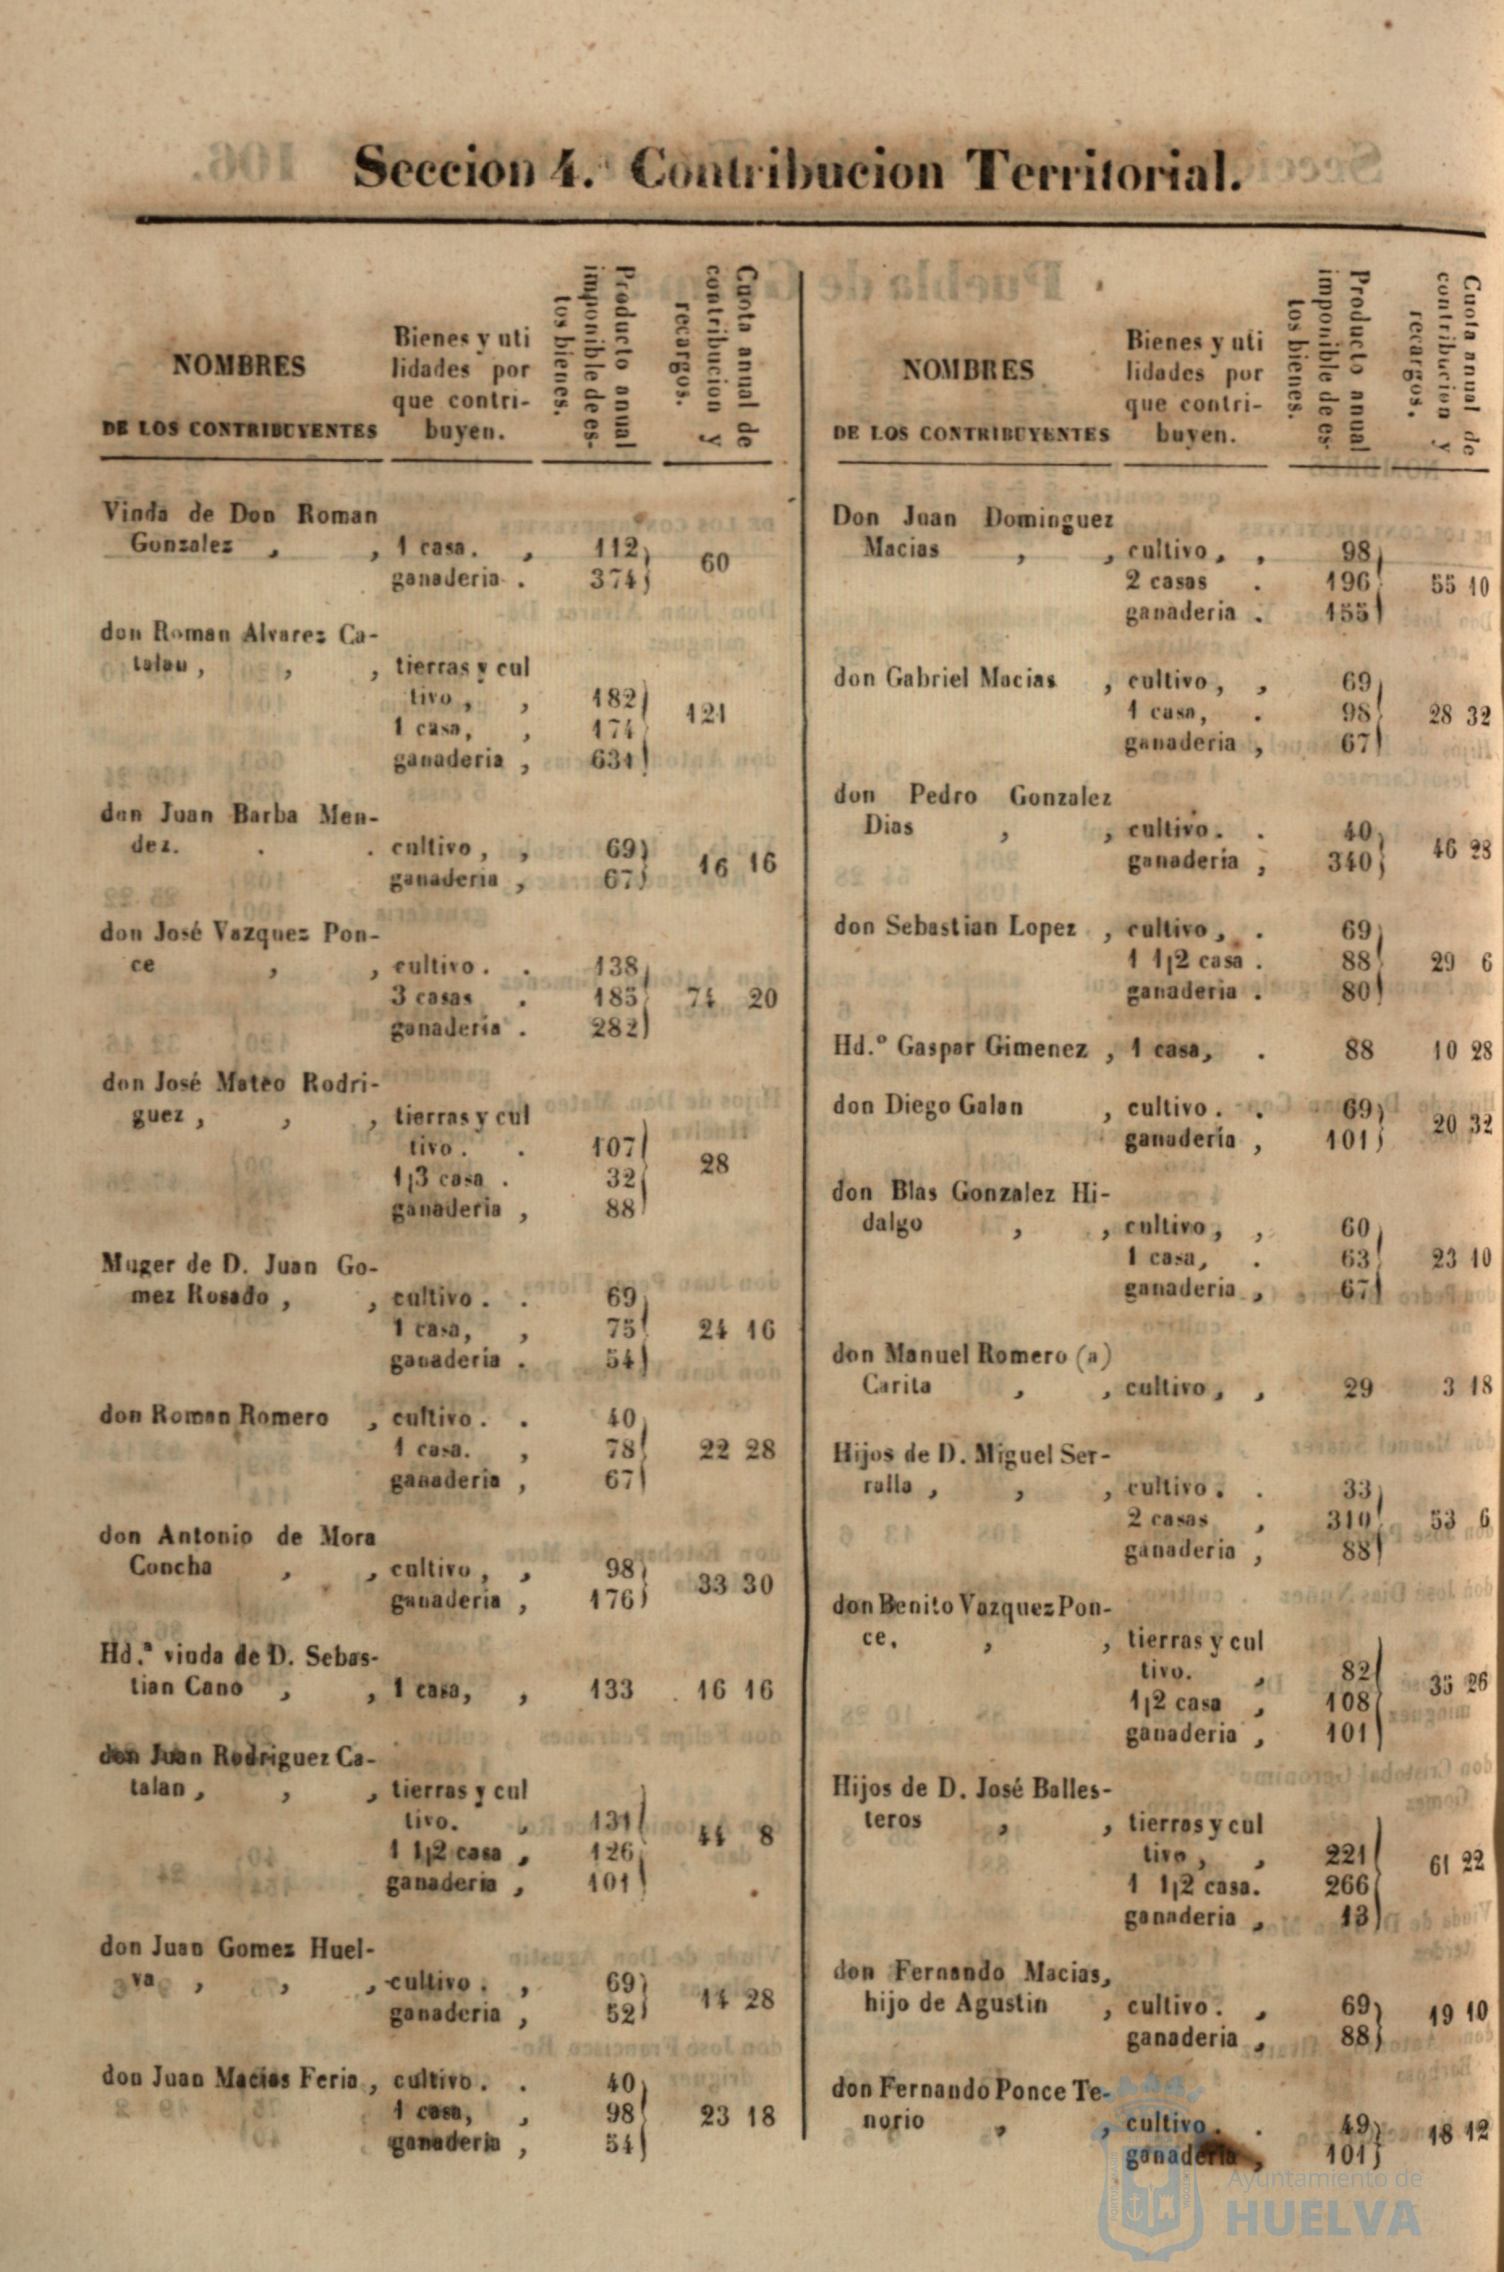 Seccion 4.ª Contribucion Territorial.
NOMBRES
DE LOS CONTRIBUYENTES
Bienes y uti
lidades por
que contri-
buyen.
Producto anual
imponible de es-
los bienes.
Cuota anual de
contribucion y
recargos.
Vinda de Don Roman
Gonzalez , , 1 casa. , 112
ganaderia . 374 60
don Roman Alvarez Ca-
talan , , , tierras y cul
tivo , , 182
1 casa, , 174 121
ganaderia , 631
don Juan Barba Men-
dez. . . cultivo , , 69
ganaderia , 67 16 16
don José Vazquez Pon-
ce , , cultivo . . 138
3 casas . 185 74 20
ganaderia . 282
don José Mateo Rodri-
guez , , , tierras y cul
tivo . . 107
1|3 casa . 32 28
ganaderia , 88
Muger de D. Juan Go-
mez Rosado , , cultivo . . 69
1 casa, , 75 24 16
ganaderia . 54
don Roman Romero , cultivo . . 40
1 casa. , 78 22 28
ganaderia , 67
don Antonio de Mora
Concha , , cultivo , , 98
ganaderia , 176 33 30
Hd.ª viuda de D. Sebas-
tian Cano , , 1 casa, , 133 16 16
don Juan Rodriguez Ca-
talan , , , tierras y cul
tivo. , 131
1 1|2 casa , 126 44 8
ganaderia , 101
don Juan Gomez Huel-
va , , , cultivo . , 69
ganaderia , 52 14 28
don Juan Macias Feria , cultivo . . 40
1 casa, , 98 23 18
ganaderia , 54
NOMBRES
DE LOS CONTRIBUYENTES
Bienes y uti
lidades por
que contri-
buyen.
Producto anual
imponible de es-
los bienes.
Cuota anual de
contribucion y
recargos.
Don Juan Dominguez
Macias , , cultivo , , 98
2 casas . 196 55 10
ganaderia . 155
don Gabriel Macias , cultivo , , 69
1 casa, . 98 28 32
ganaderia , 67
don Pedro Gonzalez
Dias , , cultivo. . 40
ganaderia , 340 46 28
don Sebastian Lopez , cultivo , . 69
1 1|2 casa . 88 29 6
ganaderia . 80
Hd.º Gaspar Gimenez , 1 casa, . 88 10 28
don Diego Galan , cultivo . . 69
ganaderia , 101 20 32
don Blas Gonzalez Hi-
dalgo , , cultivo , , 60
1 casa, . 63 23 10
ganaderia , 67
don Manuel Romero (a)
Carita , , cultivo , , 29 3 18
Hijos de D. Miguel Ser-
ralla , , , cultivo . . 33
2 casas , 310 53 6
ganaderia , 88
don Benito Vazquez Pon-
ce. , , tierras y cul
tivo. , 82
1|2 casa , 108 35 26
ganaderia , 101
Hijos de D. José Balles-
teros , , tierras y cul
tivo , , 221
1 1|2 casa. 266 61 22
ganaderia , 13
don Fernando Macias,
hijo de Agustin , cultivo . , 69
ganaderia , 88 19 10
don Fernando Ponce Te-
norio , , cultivo. . 49
ganaderia , 101 18 12
Ayuntamiento de
HUELVA